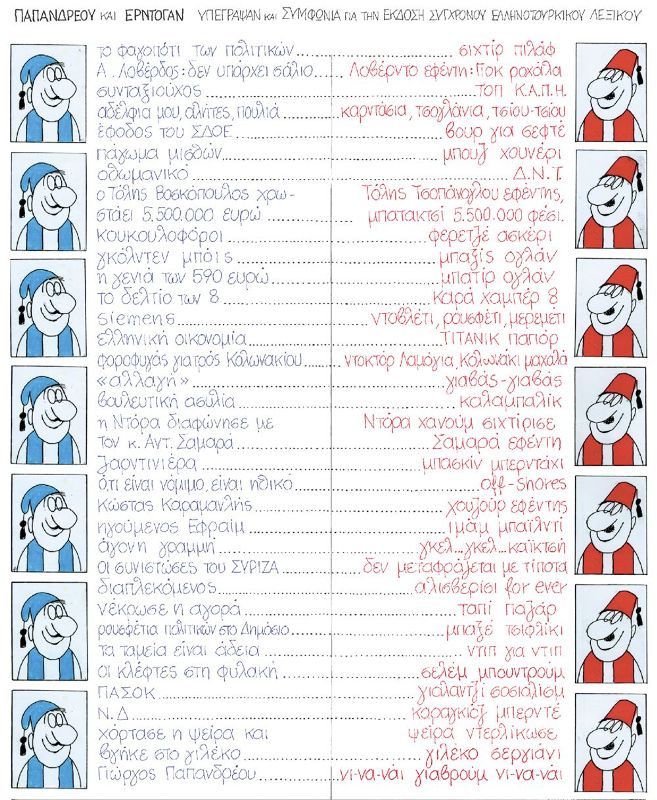 ΠΑΠΑΝΔΡΕΟΥ ΚΑΙ ΕΡΝΤΟΓΑΝ ΥΠΕΓΡΑΨΑΝ ΚΑΙ ΣΥΜΦΩΝΙΑ ΓΙΑ ΤΗΝ ΕΚΔΟΣΗ ΣΥΓΧΡΟΝΟΥ ΕΛΛΗΝΟΤΟΥΡΚΙΚΟΥ ΛΕΞΙΚΟΥ
το φαγοπότι των πολιτικών......σιχτίρ πιλάφ
Α. Λοβέρδος: δεν υπάρχει σάλιο.....Λοβέρντο εφέντη: Γιοκ ροχάλα
συνταξιούχος......τοπ Κ.Α.Π.Η.
αδέλφια μου, αλήτες, πουλιά......καρντάσια, τσογλάνια, τσίου-τσίου
έφοδος του ΣΔΟΕ......βουρ για σεφτέ
πάγωμα μισθών......μπουζ χουνέρι
οθωμανικό......Δ.Ν.Τ.
ο Τόλης Βοσκόπουλος χρω-	Τόλης Τσοπάνογλου εφέντης,
στάει 5.500.000 ευρώ......μπαταχτσί 5.500.000 φέσι.
κουκουλοφόροι......φερετζέ ασκέρι
γκόλντεν μπόις......μπαξίς ογλάν
η γενιά των 590 ευρώ......μπατίρ ογλάν
το δελτίο των 8......καρά χαμπέρ 8
siemens......ντοβλέτι, ρουσφέτι, μερεμέτι
ελληνική οικονομία......ΤΙΤΑΝΙΚ παπόρ
φοροφυγάς γιατρός Κολωνακίου......ντοκτόρ Λαμόγια, Κολωνάκι μαχαλά
«αλλαγή»......γιαβάς-γιαβάς
βουλευτική ασυλία......καλαμπαλίκ
η Ντόρα διαφώνησε με	Ντόρα χανούμ σιχτίρισε
τον κ. Αντ. Σαμαρά......Σαμαρά εφέντη
ζαρντινιέρα......μπασκίν μπερντάχι
ότι είναι νόμιμο, είναι ηθικό......off-shores
Κώστας Καραμανλής......χουζούρ εφέντης
ηγούμενος Εφραίμ......ιμάμ μπαϊλντί
άγονη γραμμή......γκελ...γκελ...καϊκτσή
οι συνιστώσες του ΣΥΡΙΖΑ......δεν μεταφράζεται με τίποτα
διαπλεκόμενος......αλισβερίσι for ever
νέκρωσε η αγορά......ταπί παζάρ
ρουσφέτια πολιτικών στο Δημόσιο......μπαξέ τσιφλίκι
τα ταμεία είναι άδεια......ντιπ για ντιπ
οι κλέφτες στη φυλακή......σελέμ μπουντρούμ
ΠΑΣΟΚ......γιαλαντζί σοσιαλίσμ
Ν.Δ......καραγκιόζ μπερντέ
χόρτασε η ψείρα και	ψείρα ντερλίκωσε
βγήκε στο γιλέκο......γιλέκο σεργιάνι
Γιώργος Παπανδρέου......νι-να-νάι γιαβρούμ νι-να-νάι